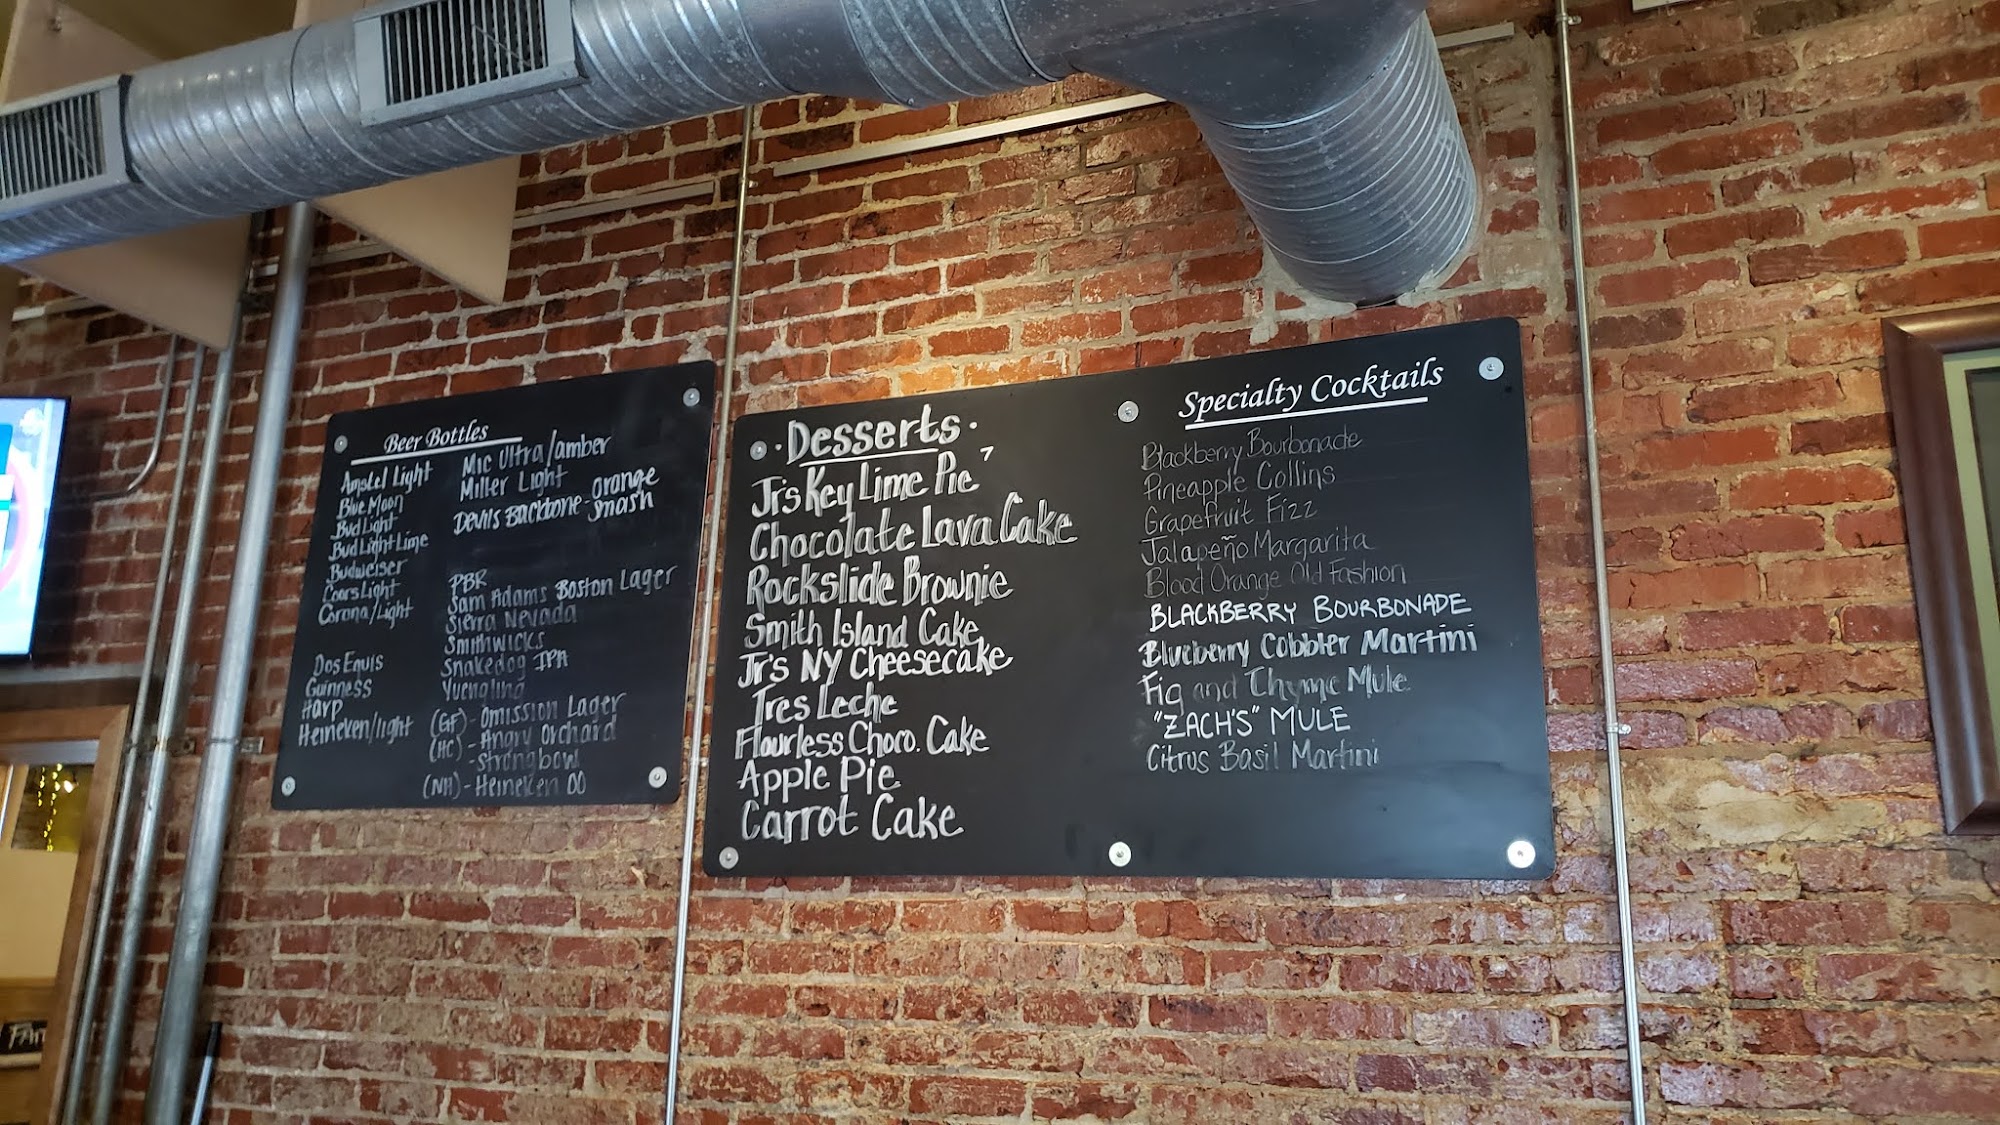 Beer Bottles
Amstel Light
Blue Moon
Bud Light
Bud Light Lime
Budweiser
Coors Light
Corona/Light
Dos Equis
Guinness
Harp
Heineken/light
Mic Ultra/amber
Miller Light
Devils Backbone - Orange
Smash
PBR
Sam Adams Boston Lager
Sierra Nevada
Smithwicks
Snakedog IPA
Yuengling
(GF) - Omission Lager
(HC) - Angry Orchard
- Strongbow
(NA) - Heineken 00
· Desserts ·
Jr's Key Lime Pie 7
Chocolate Lava Cake
Rockslide Brownie
Smith Island Cake
Jr's NY Cheesecake
Tres Leche
Flourless Choco. Cake
Apple Pie
Carrot Cake
Specialty Cocktails
Blackberry Bourbonade
Pineapple Collins
Grapefruit Fizz
Jalapeño Margarita
Blood Orange Old Fashion
BLACKBERRY BOURBONADE
Blueberry Cobbler Martini
Fig and Thyme Mule
"ZACH'S" MULE
Citrus Basil Martini